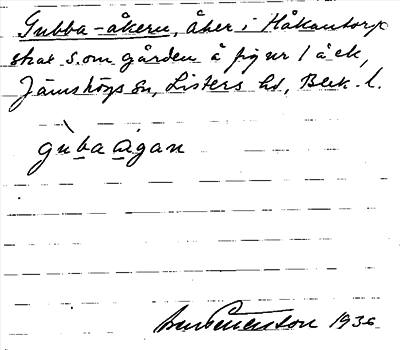 Gubba-åkern, åker i Håkantorp
strax S.om gården å fig nr 1 å ek,
Jämshögs sn, Listers hd, Blek. l.
gùba ågan
1936